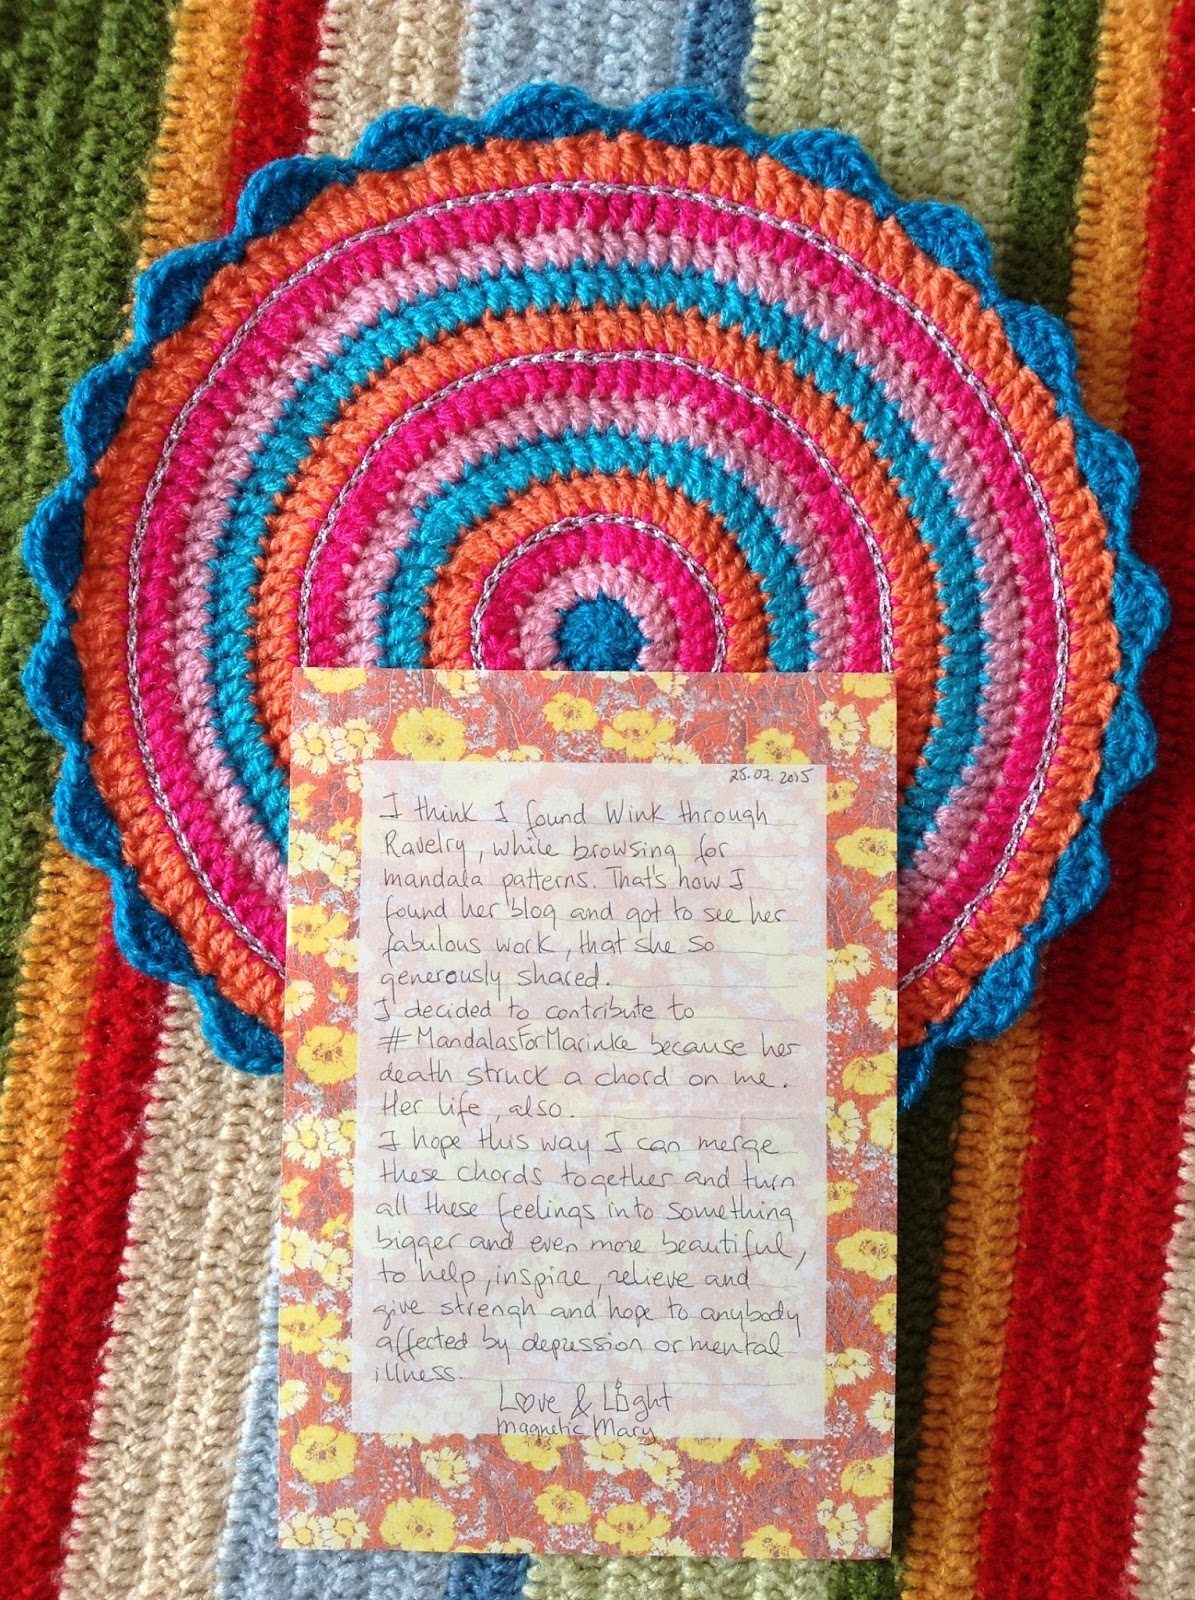 25.07.2015
I think I found Wink through
Ravelry, while browsing for
mandala patterns. That's how I
found her blog and got to see her
fabulous work, that she so
generously shared.
I decided to contribute to
#MandalasForMarinke because her
death struck a chord on me.
Her life, also.
I hope this way I can merge
these chords together and turn
all these feelings into something
bigger and even more beautiful,
to help, inspire, relieve and
give strengh and hope to anybody
affected by depression or mental
illness.
Love & Light
magnetic Mary